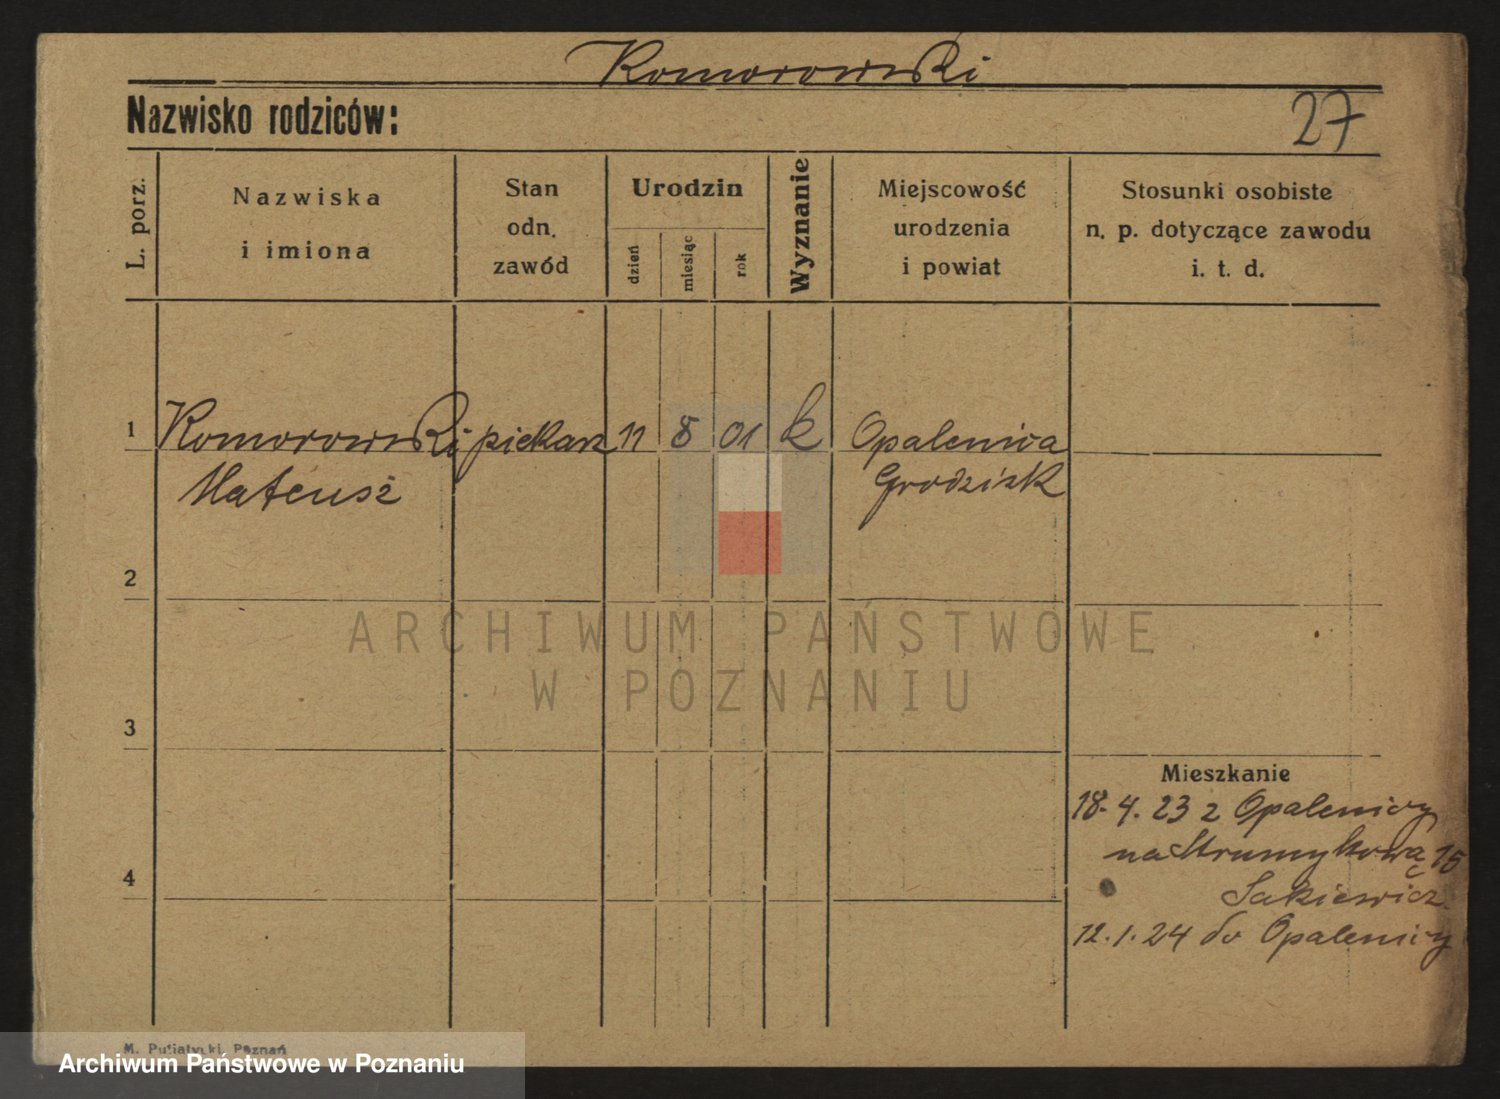 Komorowski
Nazwisko rodziców:
27
L. porz.
Nazwiska
i imiona
Stan
odn.
zawód
Urodzin
dzień
miesiąc
rok
Wyznanie
Miejscowość
urodzenia
i powiat
Stosunki osobiste
n. p. dotyczące zawodu
i. t. d.
1 Komorowski piekarz 11 8 01 k Opalenica
Mateusz Grodzisk
2
3
4
ARCHIWUM PAŃSTWOWE
W POZNANIU
Mieszkanie
18. 4. 23 z Opalenicy
na Strumykową 15
12. 1. 24 do Opalenicy
M. Putiatycki, Poznań
Archiwum Państwowe w Poznaniu